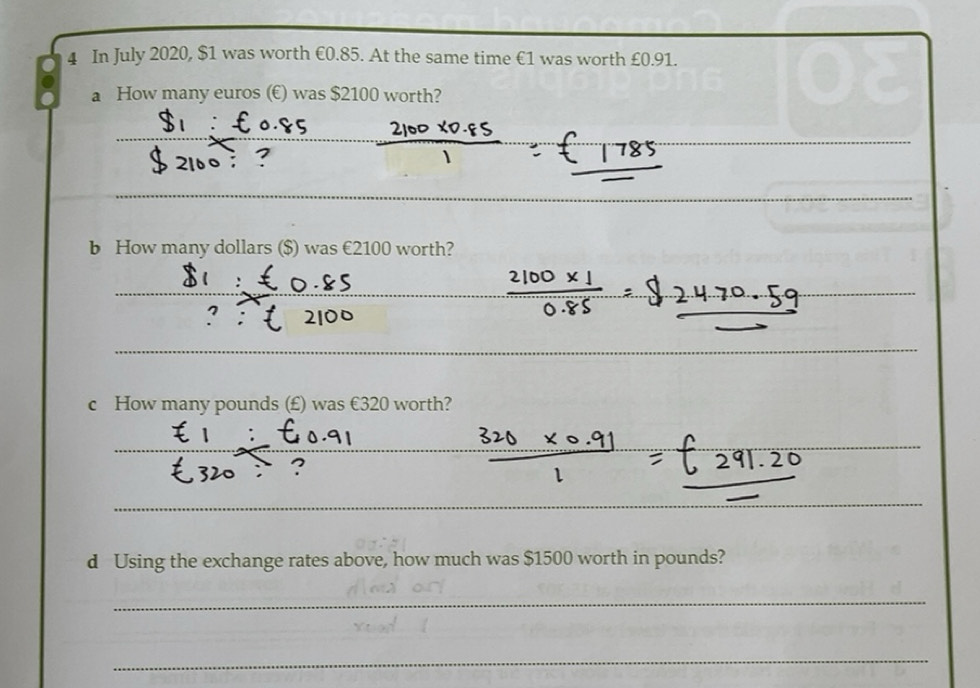 4 In July 2020, $1 was worth €0.85. At the same time €1 was worth £0.91.
a How many euros (€) was $2100 worth?
$1 : € 0.85
2100 x0.85
$ 2100 : ?
1
= € 1785
b How many dollars ($) was €2100 worth?
$1 : € 0.85
2100 x 1
? : € 2100
0.85
= $ 2470.59
c How many pounds (£) was €320 worth?
€ 1 : £0.91
320 x 0.91
€ 320 : ?
1
= £ 291.20
d Using the exchange rates above, how much was $1500 worth in pounds?